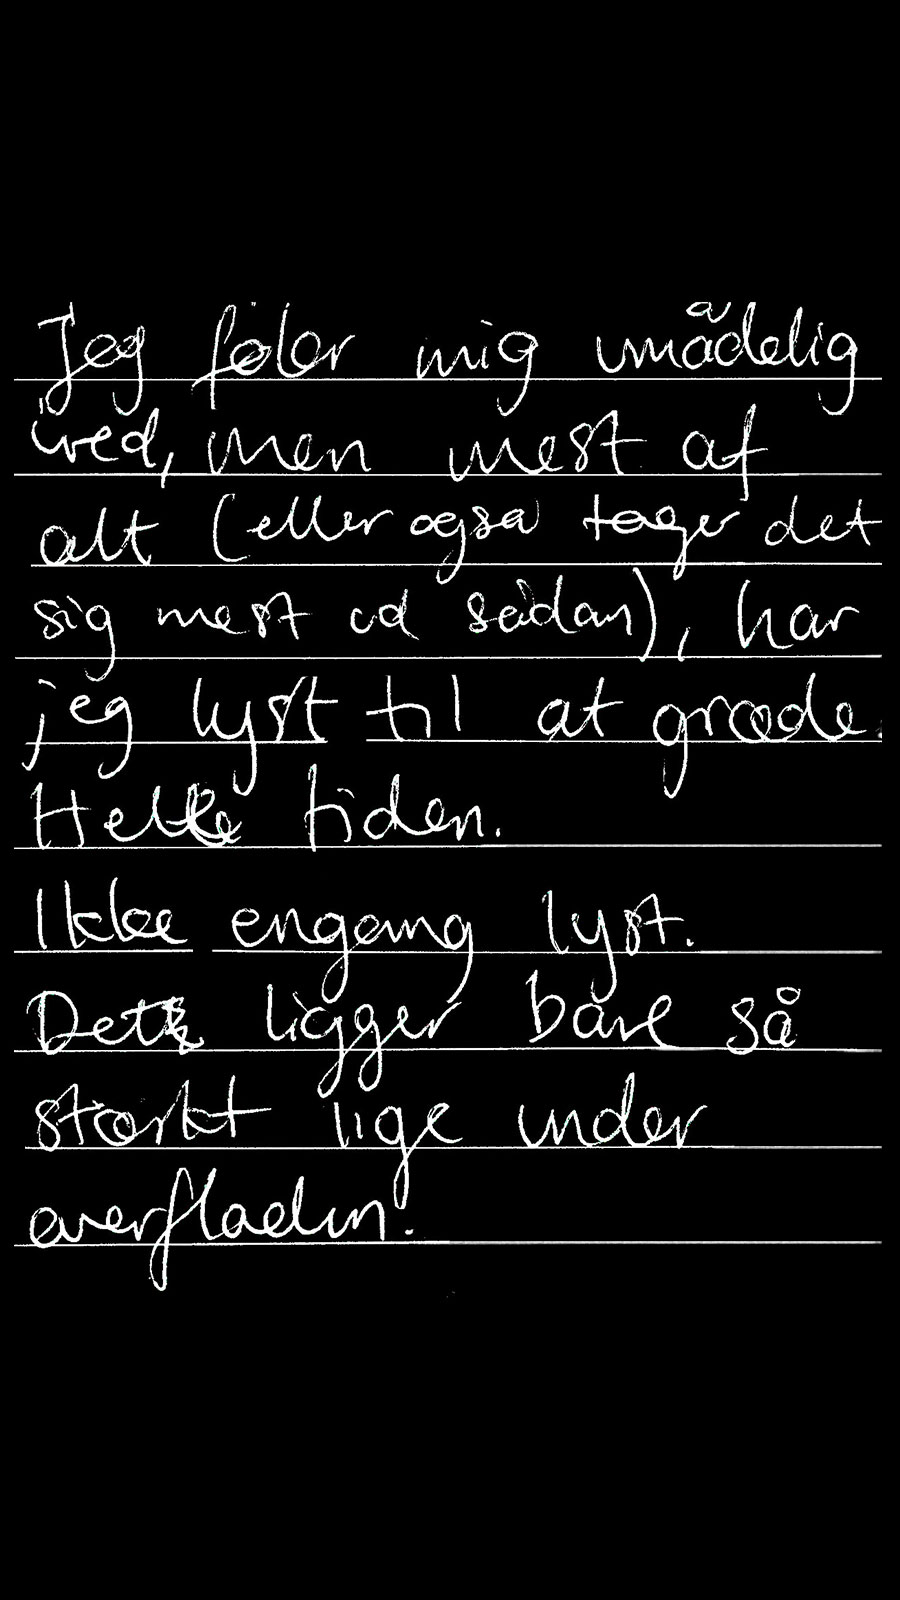 Jeg føler mig umådelig
vred, men mest af
alt (eller også tager det
sig mest ud sådan), har
jeg lyst til at græde.
Hele tiden.
Ikke engang lyst.
Det ligger bare så
stærkt lige under
overfladen.